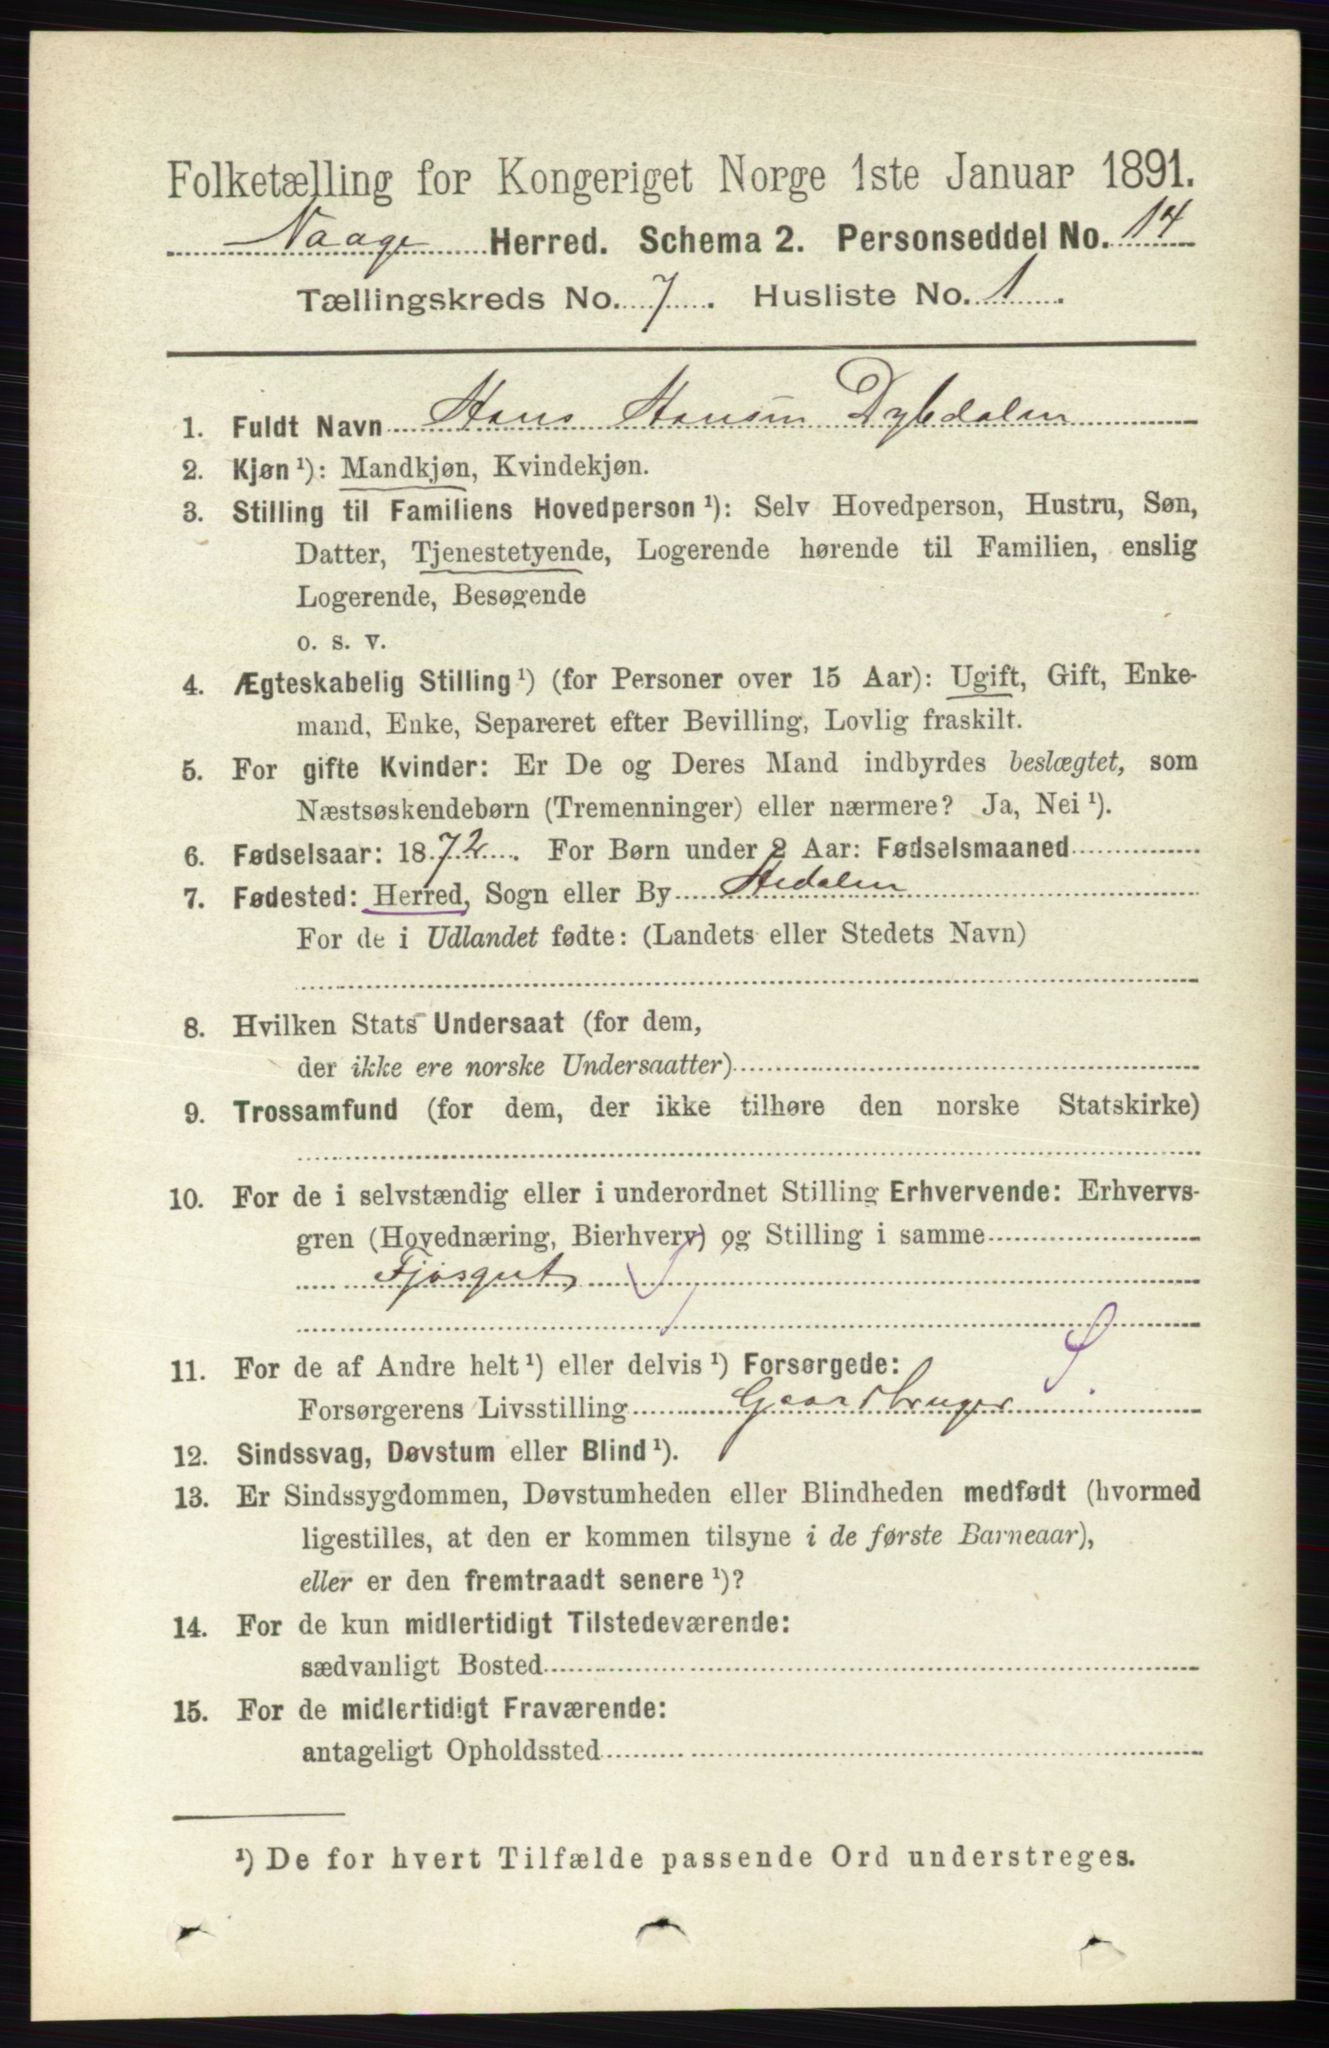 Folketælling for Kongeriget Norge 1ste Januar 1891.
Vaage Herred. Schema 2. Personseddel No. 14
Tællingskreds No. 7. Husliste No. 1.
1. Fuldt Navn Hans Hansen Dybdalen
2. Kjøn ¹): Mandkjøn, Kvindekjøn.
3. Stilling til Familiens Hovedperson ¹): Selv Hovedperson, Hustru, Søn,
Datter, Tjenestetyende, Logerende hørende til Familien, enslig
Logerende, Besøgende
o. s. v.
4. Ægteskabelig Stilling ¹) (for Personer over 15 Aar): Ugift, Gift, Enke-
mand, Enke, Separeret efter Bevilling, Lovlig fraskilt.
5. For gifte Kvinder: Er De og Deres Mand indbyrdes beslægtet, som
Næstsøskendebørn (Tremenninger) eller nærmere? Ja, Nei ¹).
6. Fødselsaar: 1872. For Børn under 2 Aar: Fødselsmaaned
7. Fødested: Herred, Sogn eller By Hedalen
For de i Udlandet fødte: (Landets eller Stedets Navn)
8. Hvilken Stats Undersaat (for dem,
der ikke ere norske Undersaatter)
9. Trossamfund (for dem, der ikke tilhøre den norske Statskirke)
10. For de i selvstændig eller i underordnet Stilling Erhvervende: Erhvervs-
gren (Hovednæring, Bierhverv) og Stilling i samme
Fjøsgut
11. For de af Andre helt ¹) eller delvis ¹) Forsørgede:
Forsørgerens Livsstilling Gaardbruger
12. Sindssvag, Døvstum eller Blind ¹).
13. Er Sindssygdommen, Døvstumheden eller Blindheden medfødt (hvormed
ligestilles, at den er kommen tilsyne i de første Barneaar),
eller er den fremtraadt senere ¹)?
14. For de kun midlertidigt Tilstedeværende:
sædvanligt Bosted
15. For de midlertidigt Fraværende:
antageligt Opholdssted
¹) De for hvert Tilfælde passende Ord understreges.